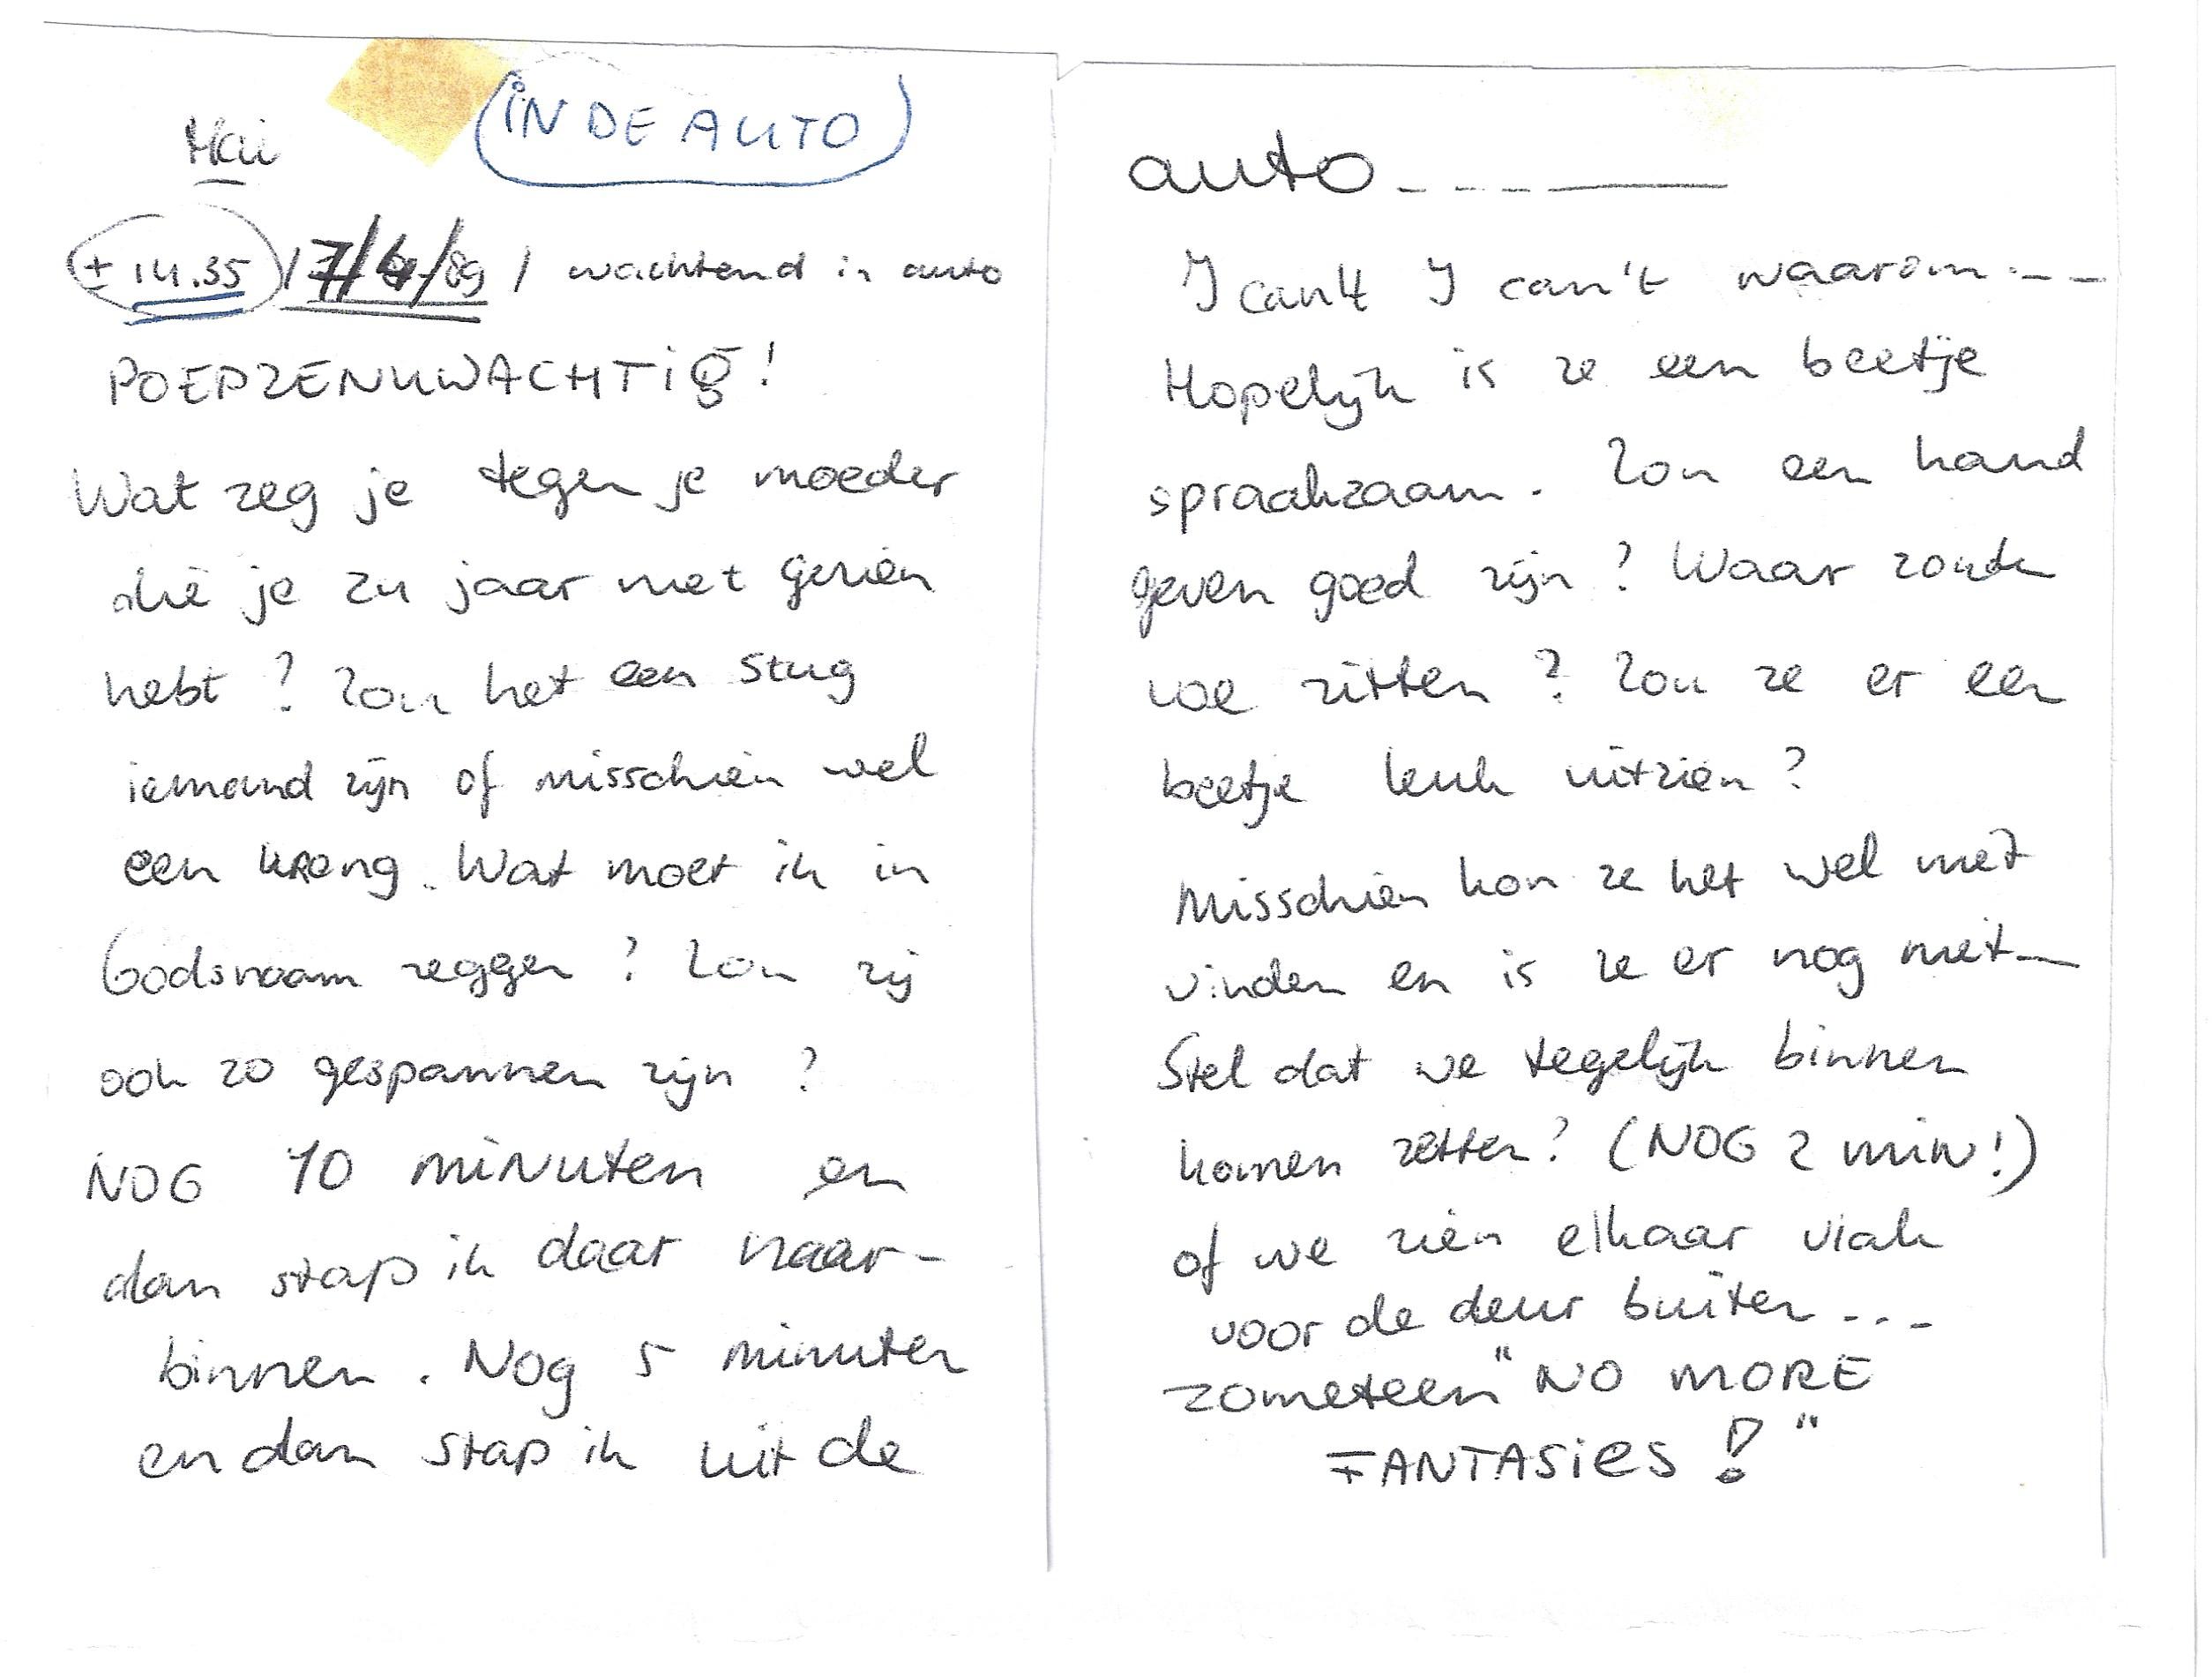 Hai
IN DE AUTO
± 14.35 / 7/4/89 / wachtend in auto
POEPZENUWACHTIG!
Wat zeg je tegen je moeder
die je 24 jaar niet gezien
hebt? Zou het een stug
iemand zijn of misschien wel
een kreng. Wat moet ik in
Godsnaam zeggen? Zou zij
ook zo gespannen zijn?
NOG 10 minuten en
dan stap ik daar naar-
binnen. Nog 5 minuten
en dan stap ik uit de
auto ----
I can't I can't waarom ---
Hopelijk is ze een beetje
spraakzaam. Zou een hand
geven goed zijn? Waar zouden
we zitten? Zou ze er een
beetje leuk uitzien?
Misschien kon ze het wel niet
vinden en is ze er nog niet—
Stel dat we tegelijk binnen
komen zetten? (NOG 2 min!)
of we zien elkaar vlak
voor de deur buiten ...
zometeen "NO MORE
FANTASIES!"